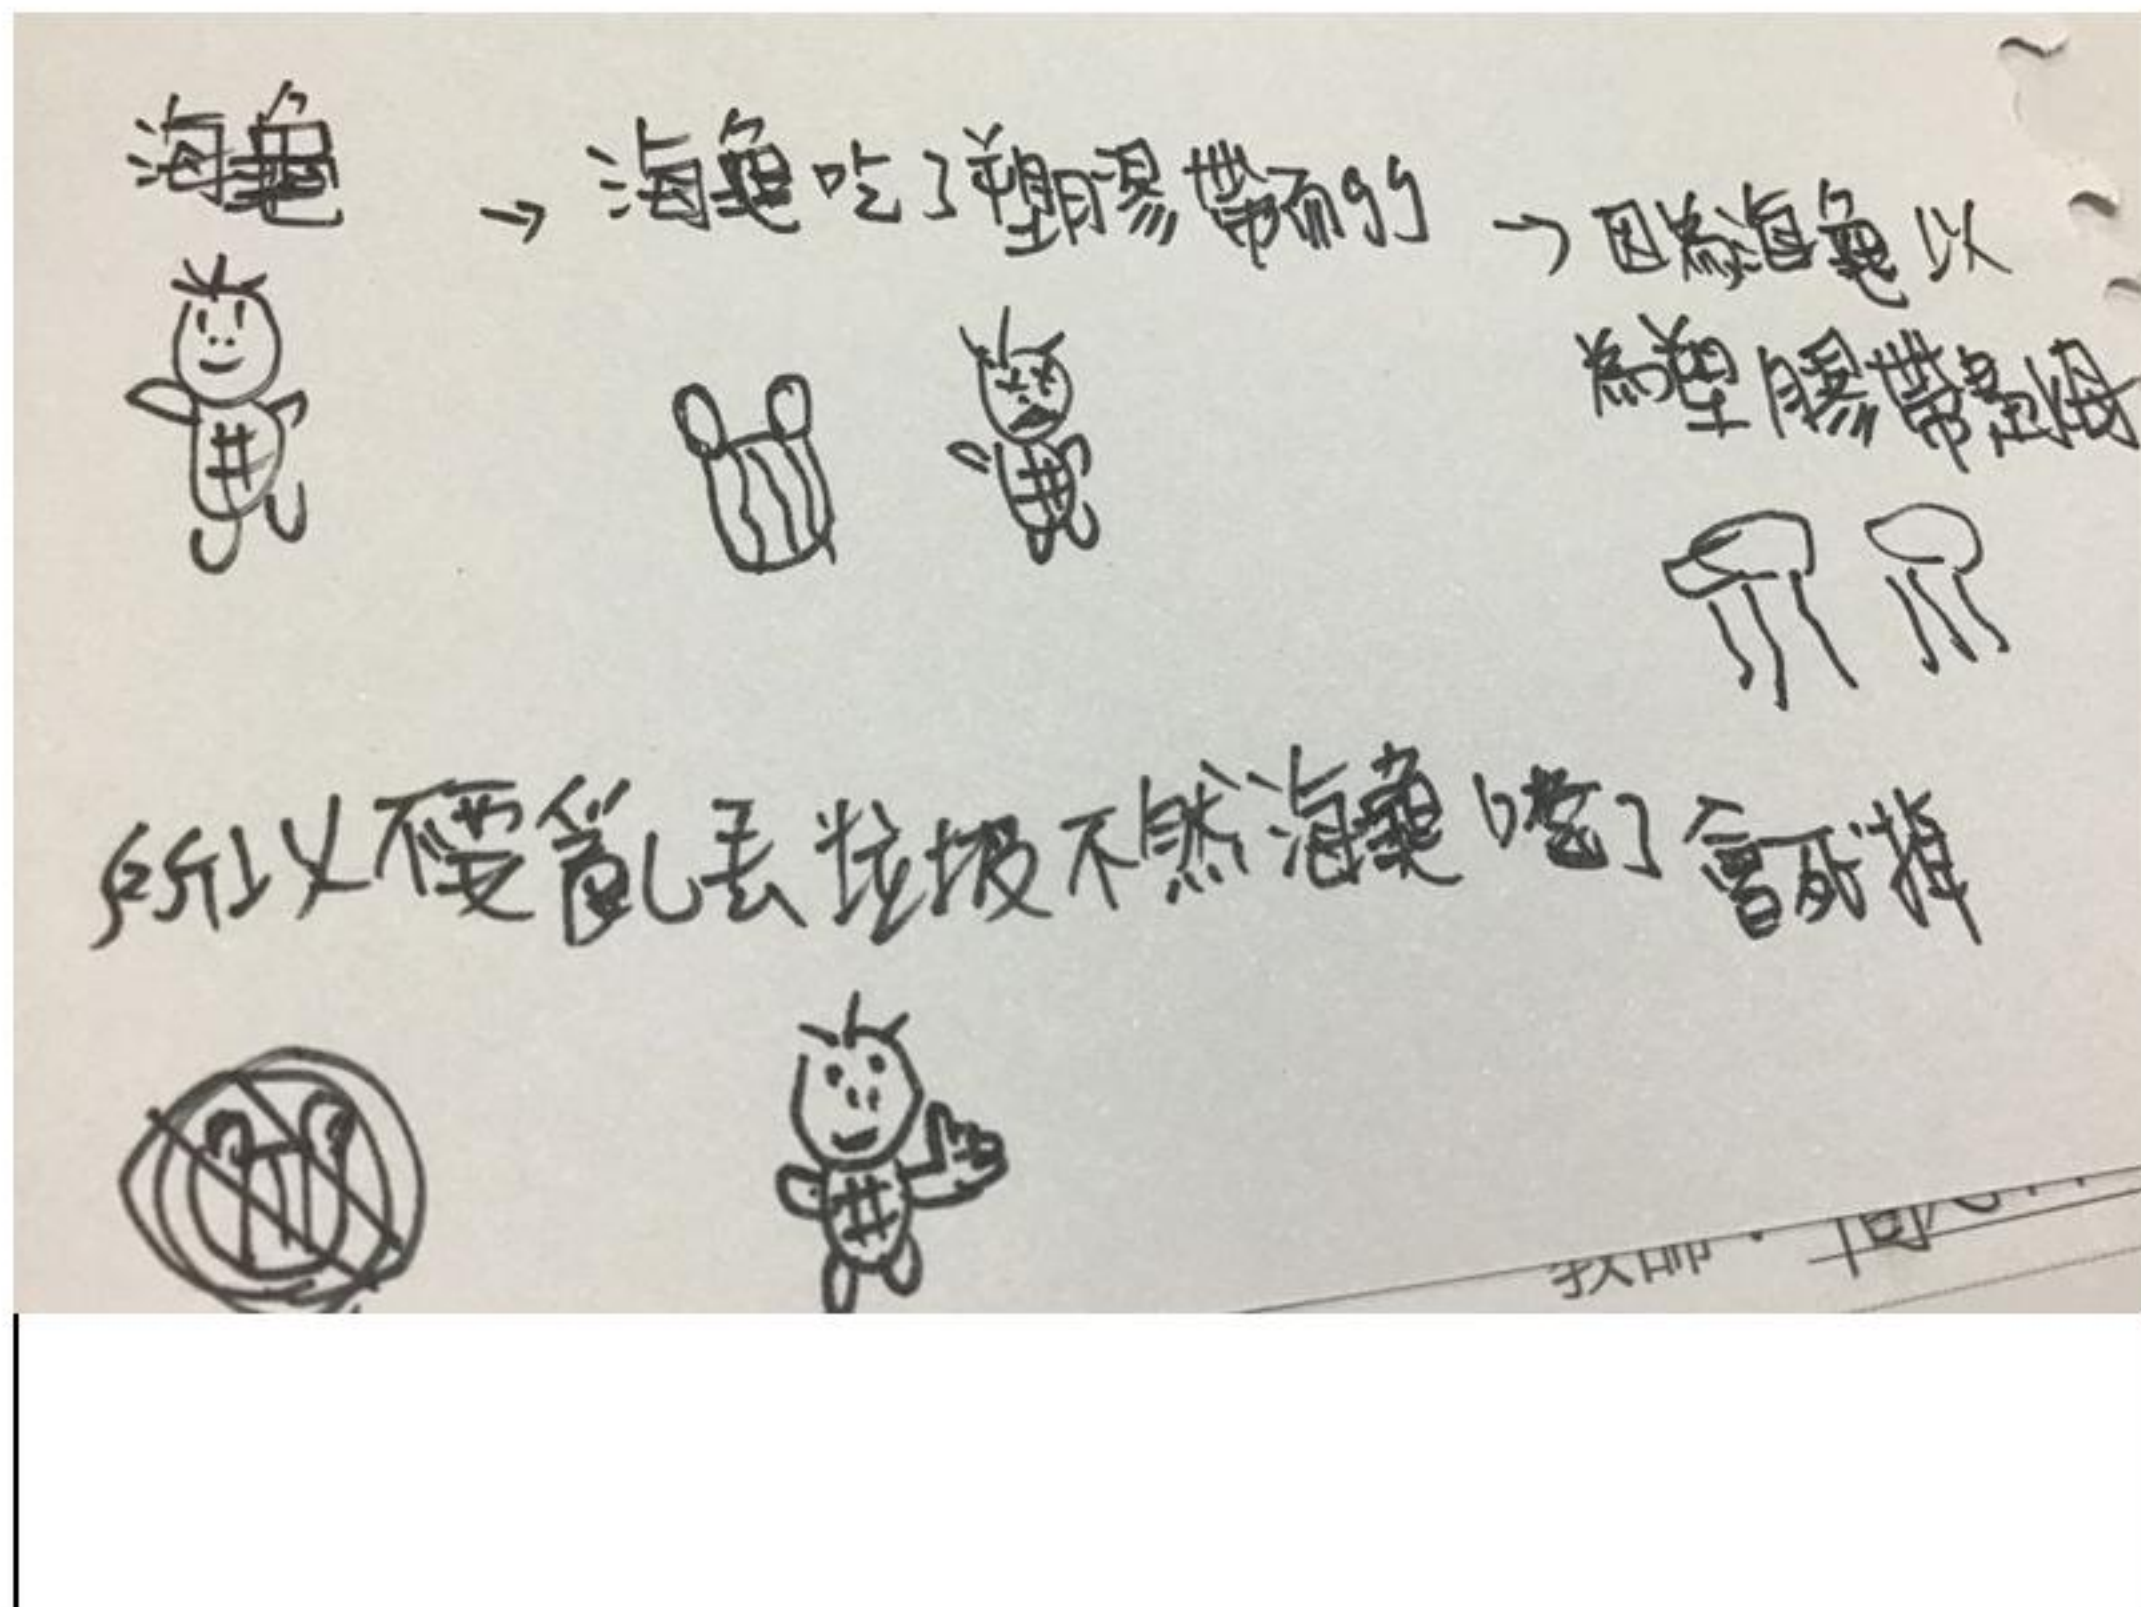 海龜
→ 海龜吃了塑膠帶而
→ 因為海龜以
為塑膠帶是
所以不要亂丟垃圾不然海龜噎了會死掉
教師：